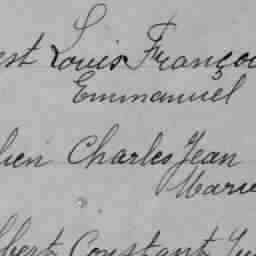 est Louis Françoi
Emmanuel
lien Charles Jean
Marie
lbert Constant Ju